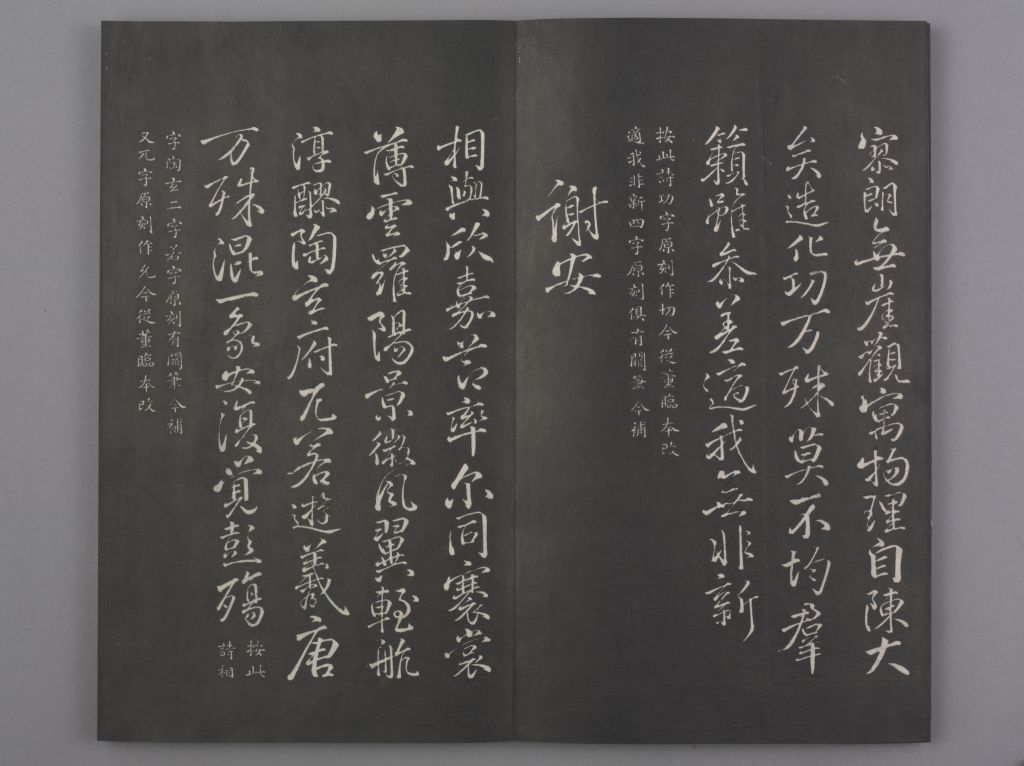 寥朗無崖觀寓物理自陳大
矣造化功万殊莫不均羣
籟雖叅差適我無非新
按此詩功字原刻作切今從董臨本改
適我非新四字原刻俱有闕筆今補
謝安
相與欣嘉莭率尔同褰裳
薄雲羅陽景微風翼輕航
淳醪陶玄府兀若遊羲唐
万殊混一象安復覺彭殤
按此
詩相
字陶玄二字若字原刻有闕筆今補
又兀字原刻作允今從董臨本改